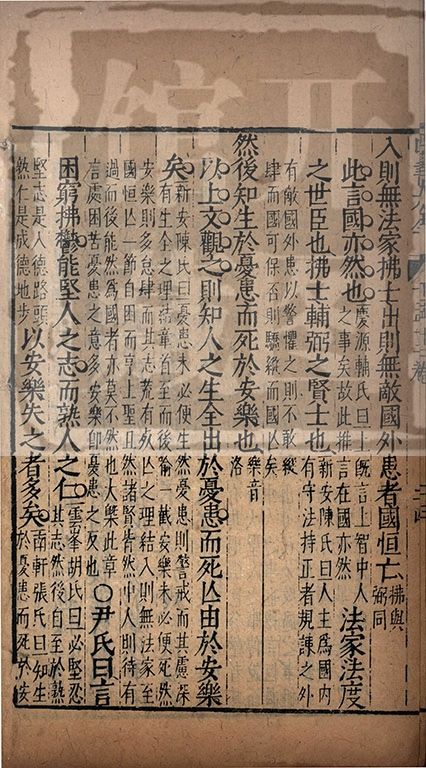 入則無法家拂士出則無敵國外患者國恒亡拂與弼同
此言國亦然也慶源輔氏曰上旣言上智中人之事矣故此推言在國亦然法家法度
之世臣也拂士輔弼之賢士也新安陳氏曰人主為國内有守法持正者規諌之外
有敵國外患以警懼之則不敢縱肆而國可保否則驕縱而國亾矣
然後知生於憂患而死於安樂也樂音洛
以上文觀之則知人之生全出於憂患而死亾由於安樂
矣新安陳氏曰憂患未必便生然憂患則警戒而其慮深有生全之理結章首至而後喻一截安樂未必便死然
安樂則多怠肆而其志荒有敗亾之理結入則無法家至國恒亾一節自困而亨上聖且然諸賢皆然中人則待有
過而後能然為國者亦莫不然也大槩此章言處困苦憂患之意多安樂卽憂患之反也○尹氏曰言
困窮拂鬱能堅人之志而熟人之仁雲峯胡氏曰必堅忍其志然後自至於熟
堅志是入德路頭熟仁是成德地步以安樂失之者多矣南軒張氏曰知生於憂患而死於安